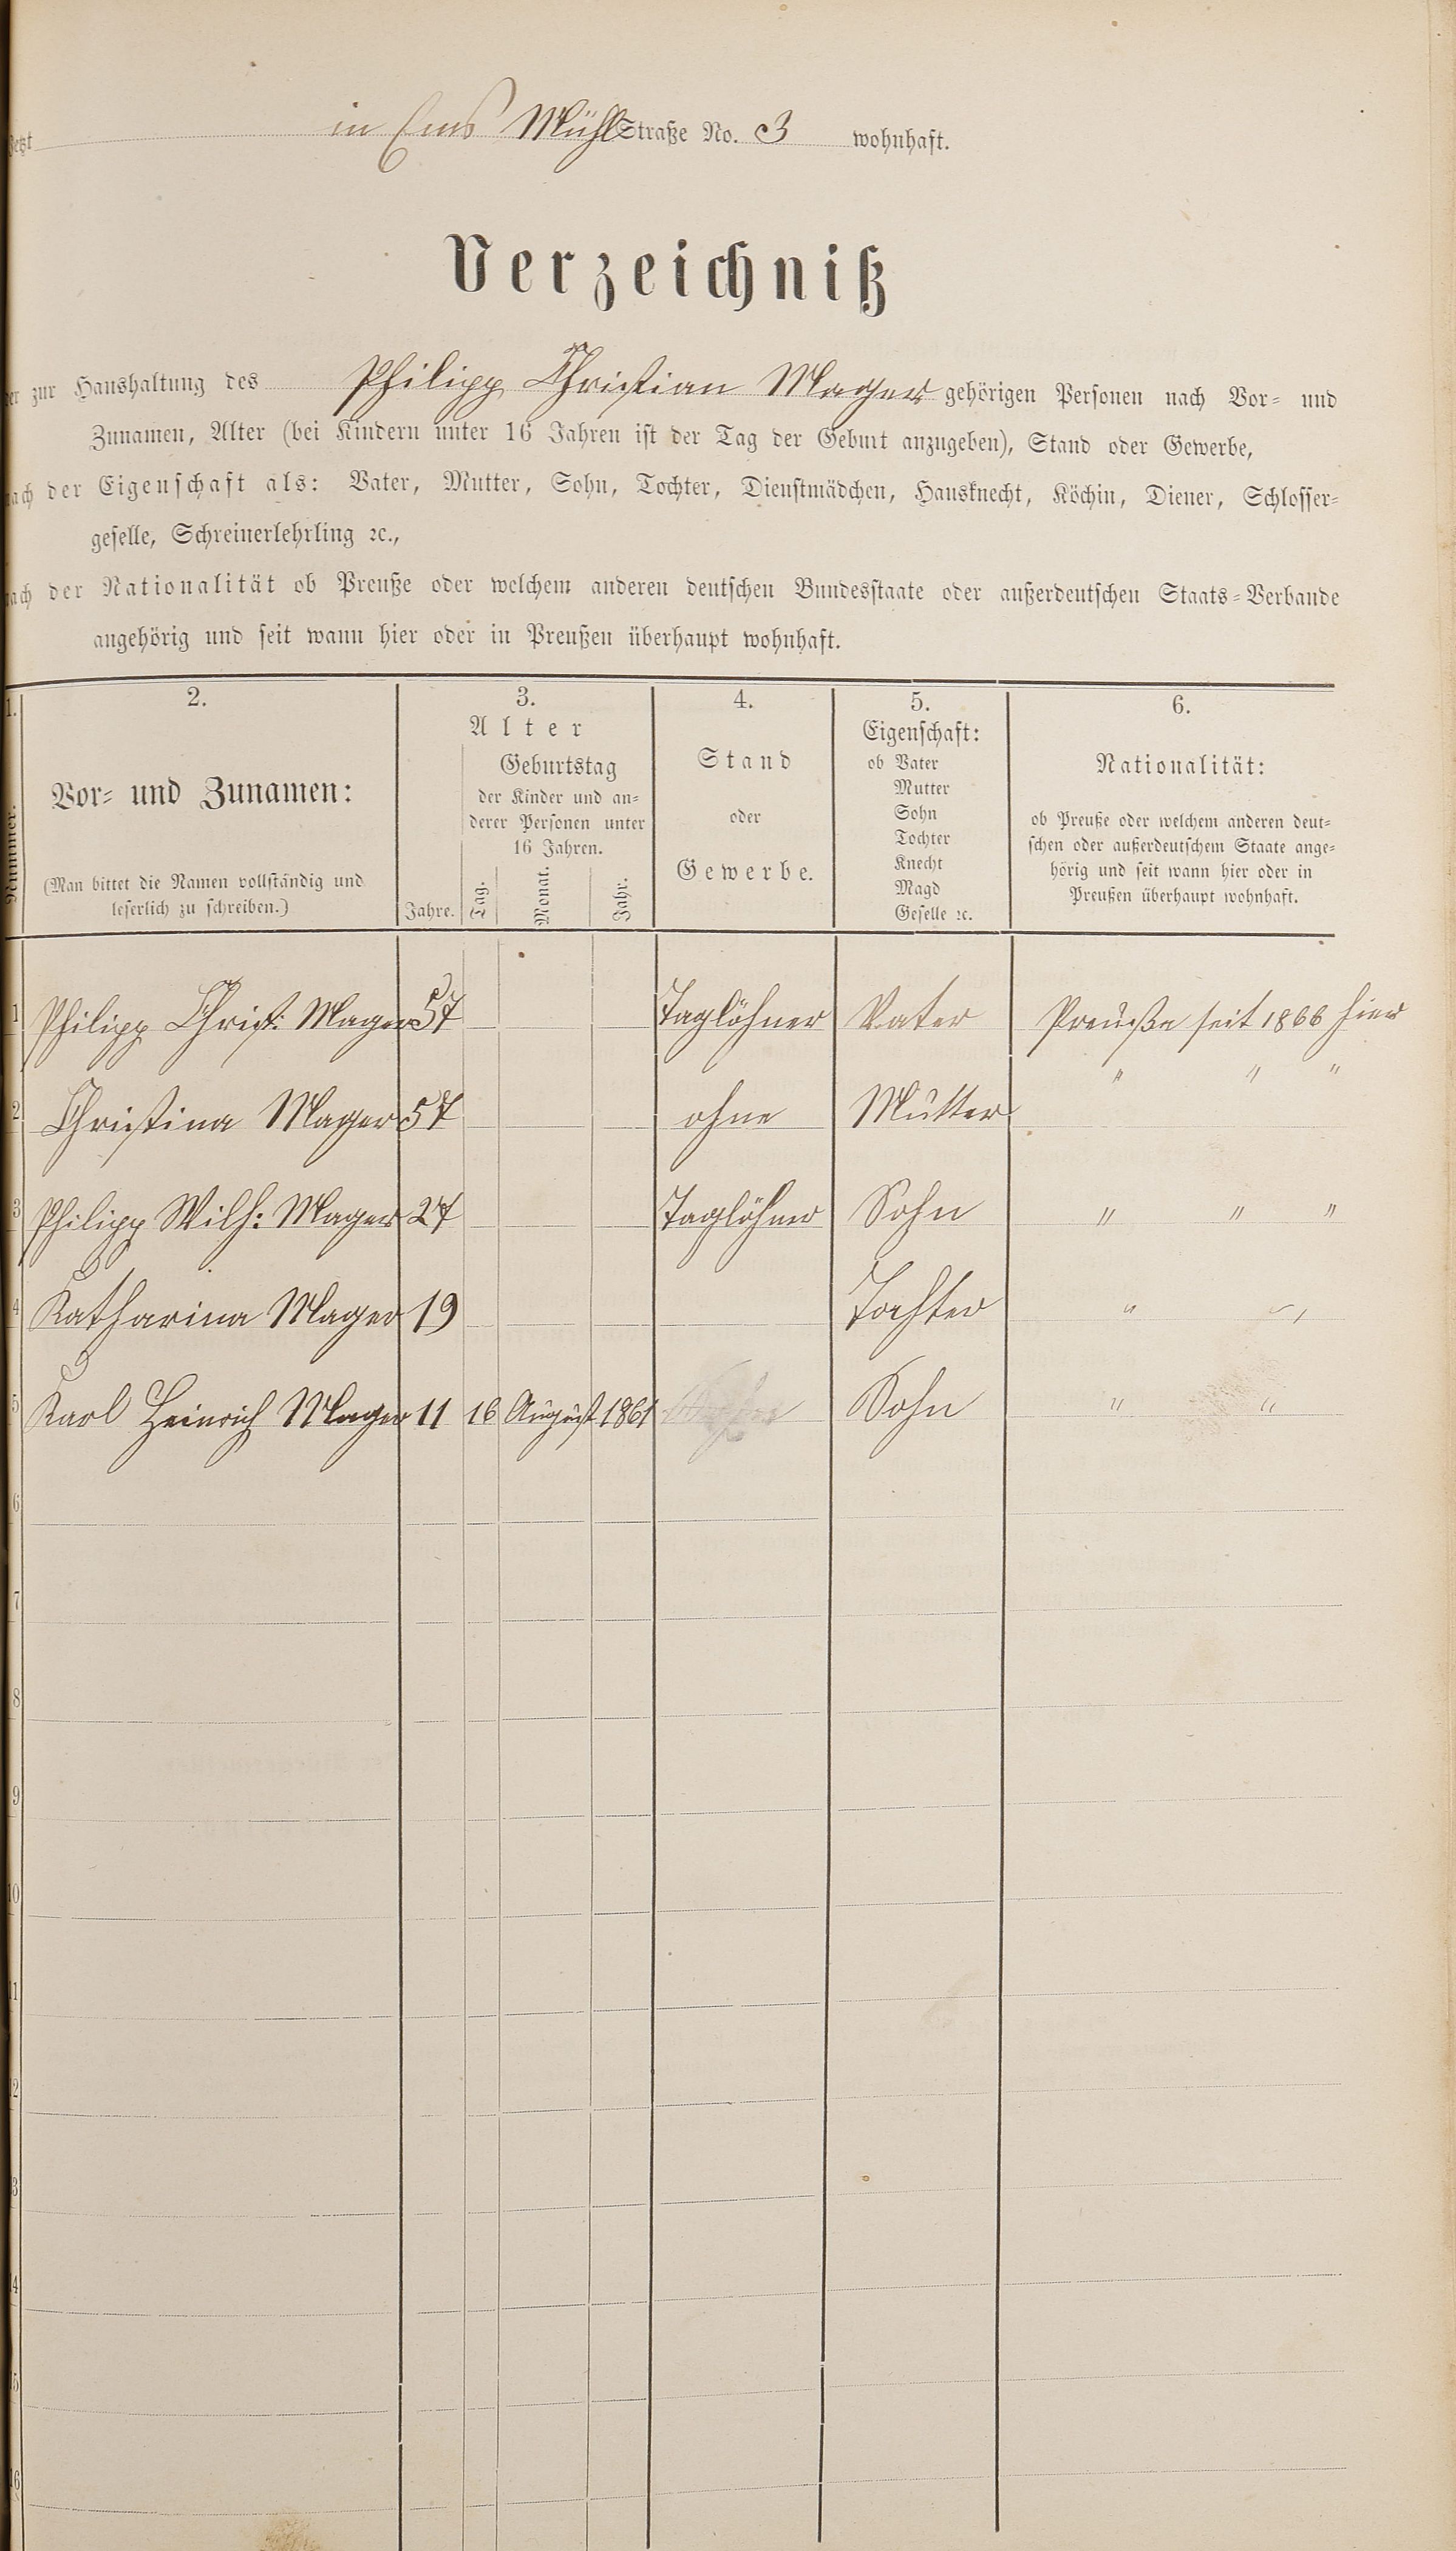 Jetzt in Ems Mühl Straße No. 3 wohnhaft.
Verzeichniß
der zur Haushaltung des Philipp Christian Mager gehörigen Personen nach Vor- und
Zunamen, Alter (bei Kindern unter 16 Jahren ist der Tag der Geburt anzugeben), Stand oder Gewerbe,
nach der Eigenschaft als: Vater, Mutter, Sohn, Tochter, Dienstmädchen, Hausknecht, Köchin, Diener, Schlosser-
geselle, Schreinerlehrling ꝛc.,
nach der Nationalität ob Preuße oder welchem anderen deutschen Bundesstaate oder außerdeutschen Staats-Verbande
angehörig und seit wann hier oder in Preußen überhaupt wohnhaft.
1.
Nummer.
2.
Vor- und Zunamen:
(Man bittet die Namen vollständig und
leserlich zu schreiben.)
3.
Alter
Jahre.
Geburtstag
der Kinder und an-
derer Personen unter
16 Jahren.
Tag. Monat. Jahr.
4.
Stand
oder
Gewerbe.
5.
Eigenschaft:
ob Vater
Mutter
Sohn
Tochter
Knecht
Magd
Geselle ꝛc.
6.
Nationalität:
ob Preuße oder welchem anderen deut-
schen oder außerdeutschem Staate ange-
hörig und seit wann hier oder in
Preußen überhaupt wohnhaft.
1 Philipp Christ: Mager 57 Taglöhner Vater Preuße seit 1866 hier
2 Christina Mager 57 ohne Mutter " " "
3 Philipp Wilh: Mager 27 Taglöhner Sohn " " "
4 Katharina Mager 19 Tochter " "
5 Karl Heinrich Mager 11 16 August 1861 Sohn " "
6
7
8
9
10
11
12
13
14
15
16